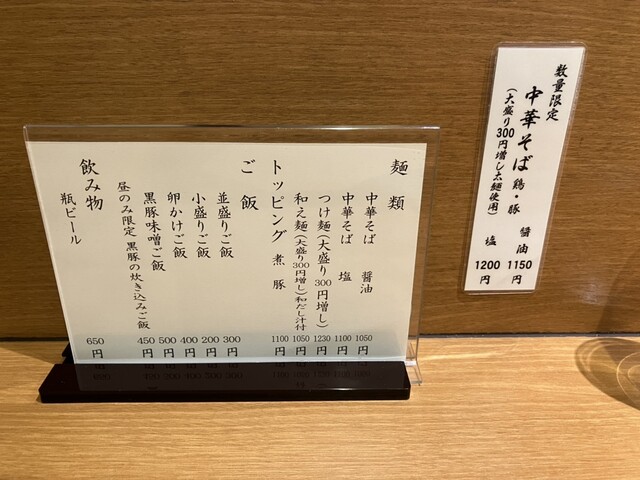 麺類
中華そば 醤油 1050円
中華そば 塩 1100円
つけ麺(大盛り300円増し) 1230円
和え麺(大盛り300円増し)和だし汁付 1050円
トッピング 煮豚 1100円
ご飯
並盛りご飯 300円
小盛りご飯 200円
卵かけご飯 400円
黒豚味噌ご飯 500円
昼のみ限定 黒豚の炊き込みご飯 450円
飲み物
瓶ビール 650円
数量限定
中華そば 鶏・豚 醤油 1150円
(大盛り300円増し太麺使用) 塩 1200円